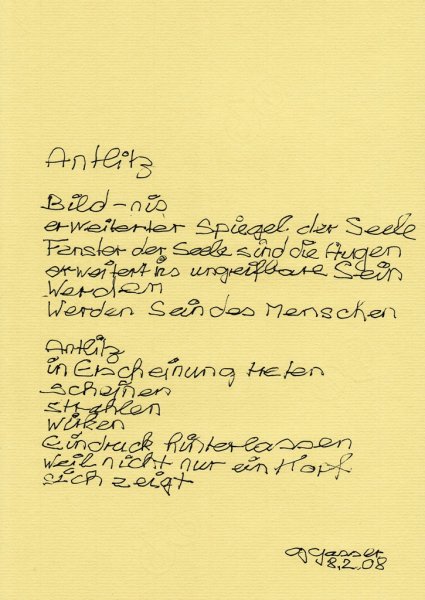 Antlitz
Bild-nis
erweiterter Spiegel der Seele
Fenster der Seele sind die Augen
erweitert ins ungreifbare Sein
Werden
Werden Sein des Menschen
Antlitz
in Erscheinung treten
scheinen
strahlen
wirken
Eindruck hinterlassen
weil nicht nur ein Kopf
sich zeigt
Gasser
8.2.08